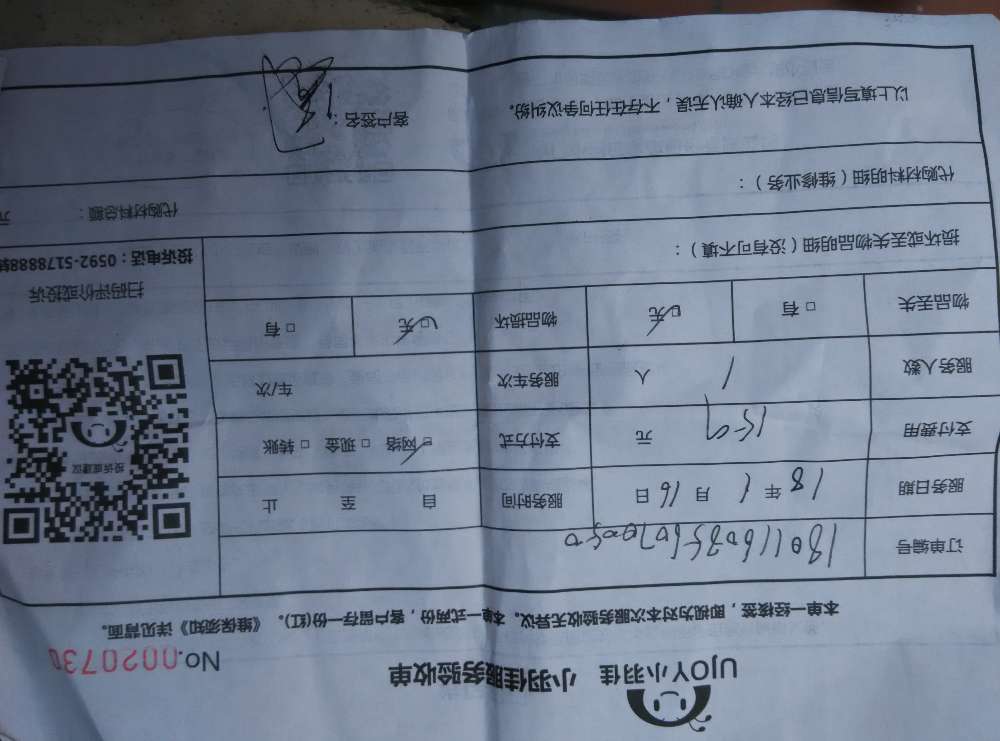 UJOY小羽佳 小羽佳服务验收单
No.0020730
本单一经核签，即视为对本次服务验收无异议。本单一式两份，客户留存一份(红)。《维保须知》详见背面。
订单编号
服务日期 18 年 1 月 16 日 服务时间 自 至 止
支付费用 159 元 支付方式 ☑网络 □现金 □转账
服务人数 1 人 服务车次 车/次
物品丢失 □有 ☑无 物品损坏 ☑无 □有
投诉或建议
扫码评价或投诉
投诉电话：0592-5178888转
损坏或丢失物品明细（没有可不填）：
代购材料明细（维修业务）：
代购材料总额： 元
以上填写信息已经本人确认无误，不存在任何争议纠纷。
客户签名：